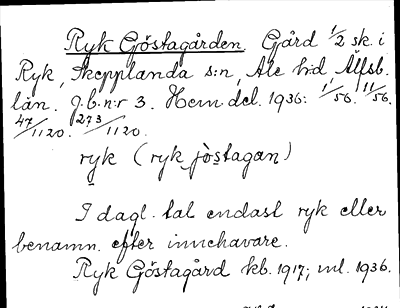 Ryk Göstagården. Gård 1/2 sk. i
Ryk, Skepplanda s:n, Ale hd, Älfsb.
län. g.b.n:r 3. Hem. del. 1936: 1/56. 11/56.
47/1120. 273/1120.
ryk (ryk jöstagan)
I dagl. tal endast ryk eller
benämn. efter innehavare.
Ryk Göstagård kb. 1917; ml. 1936.